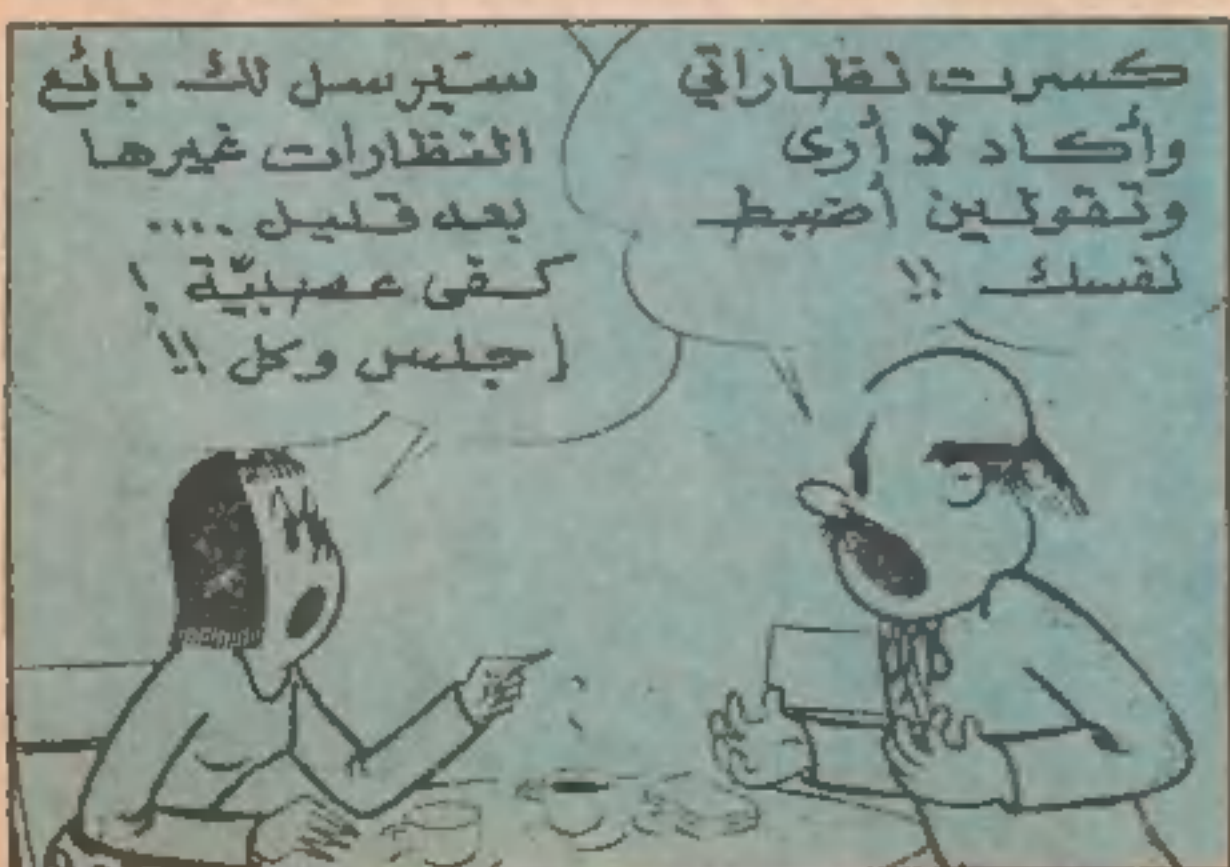 كسرت نظاراتي
وأكاد لا أرى
وتقولين أضبط
نفسك !!
سيرسل لك بائع
النظارات غيرها
بعد قليل ....
كفى عصبيّة !
إجلس وكل !!